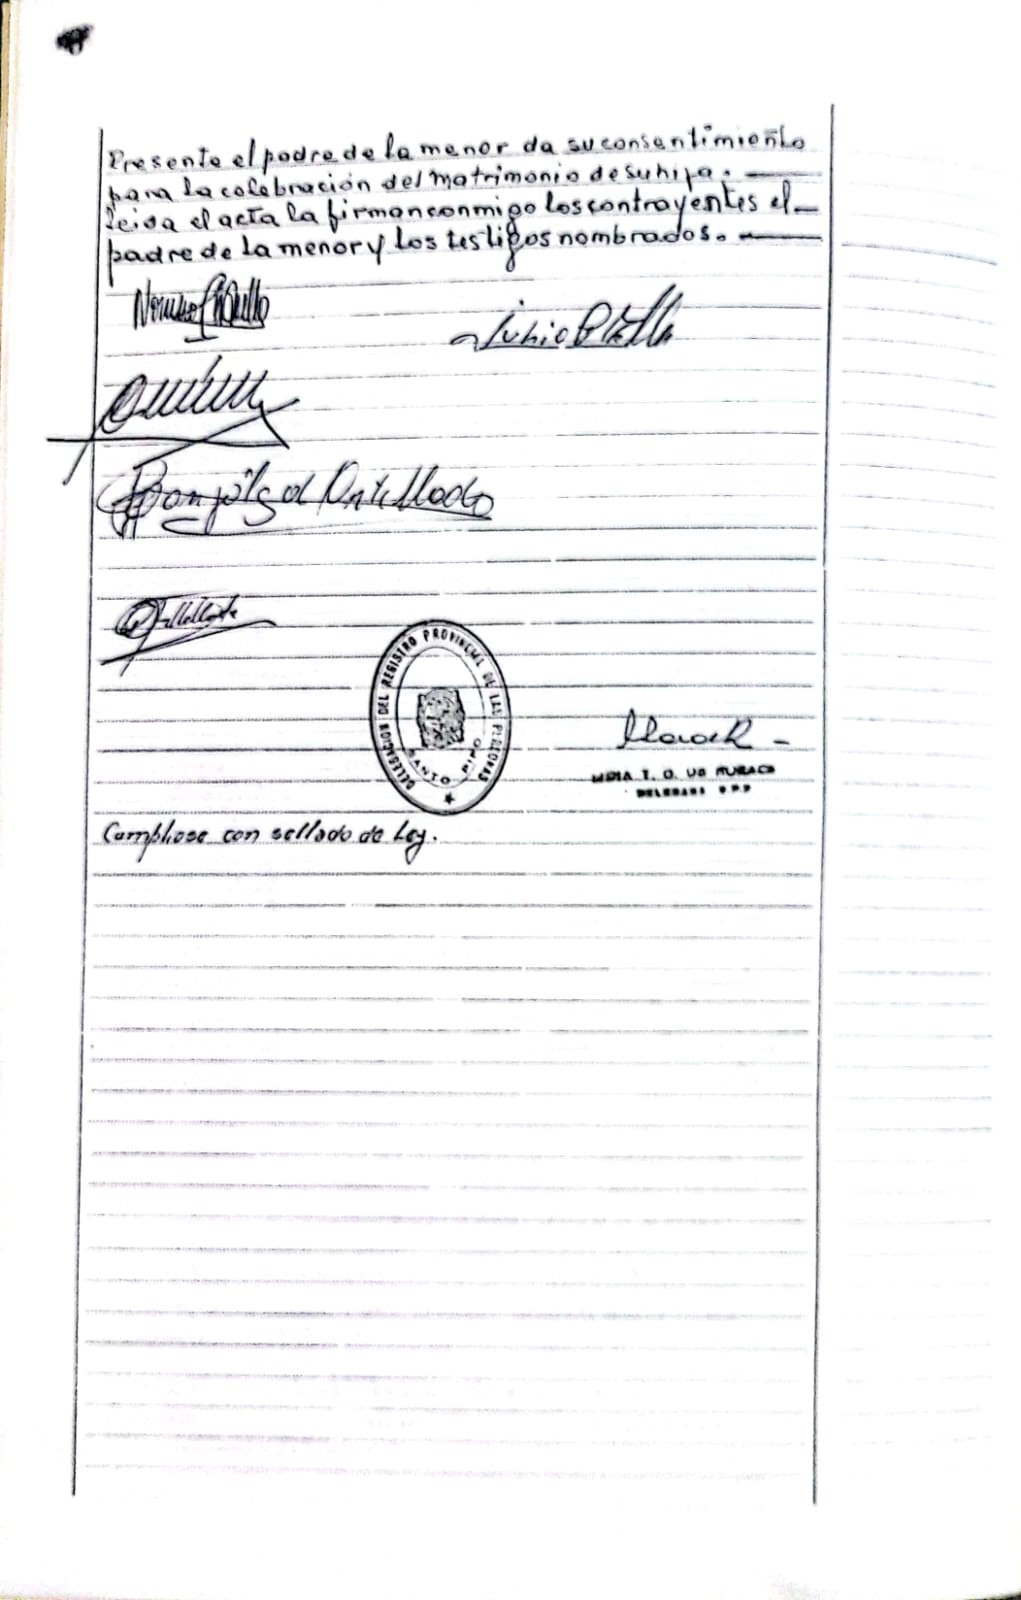 Presente el padre de la menor da su consentimiento
para la celebración del matrimonio de su hija.
Leida el acta la firman conmigo los contrayentes el
padre de la menor y los testigos nombrados.
Julio
DELEGACION DEL REGISTRO PROVINCIAL DE LAS PERSONAS
SANTO PIPO
LIDIA T. O. DE
DELEGADA R.P.P
Cumpliose con sellado de Ley.